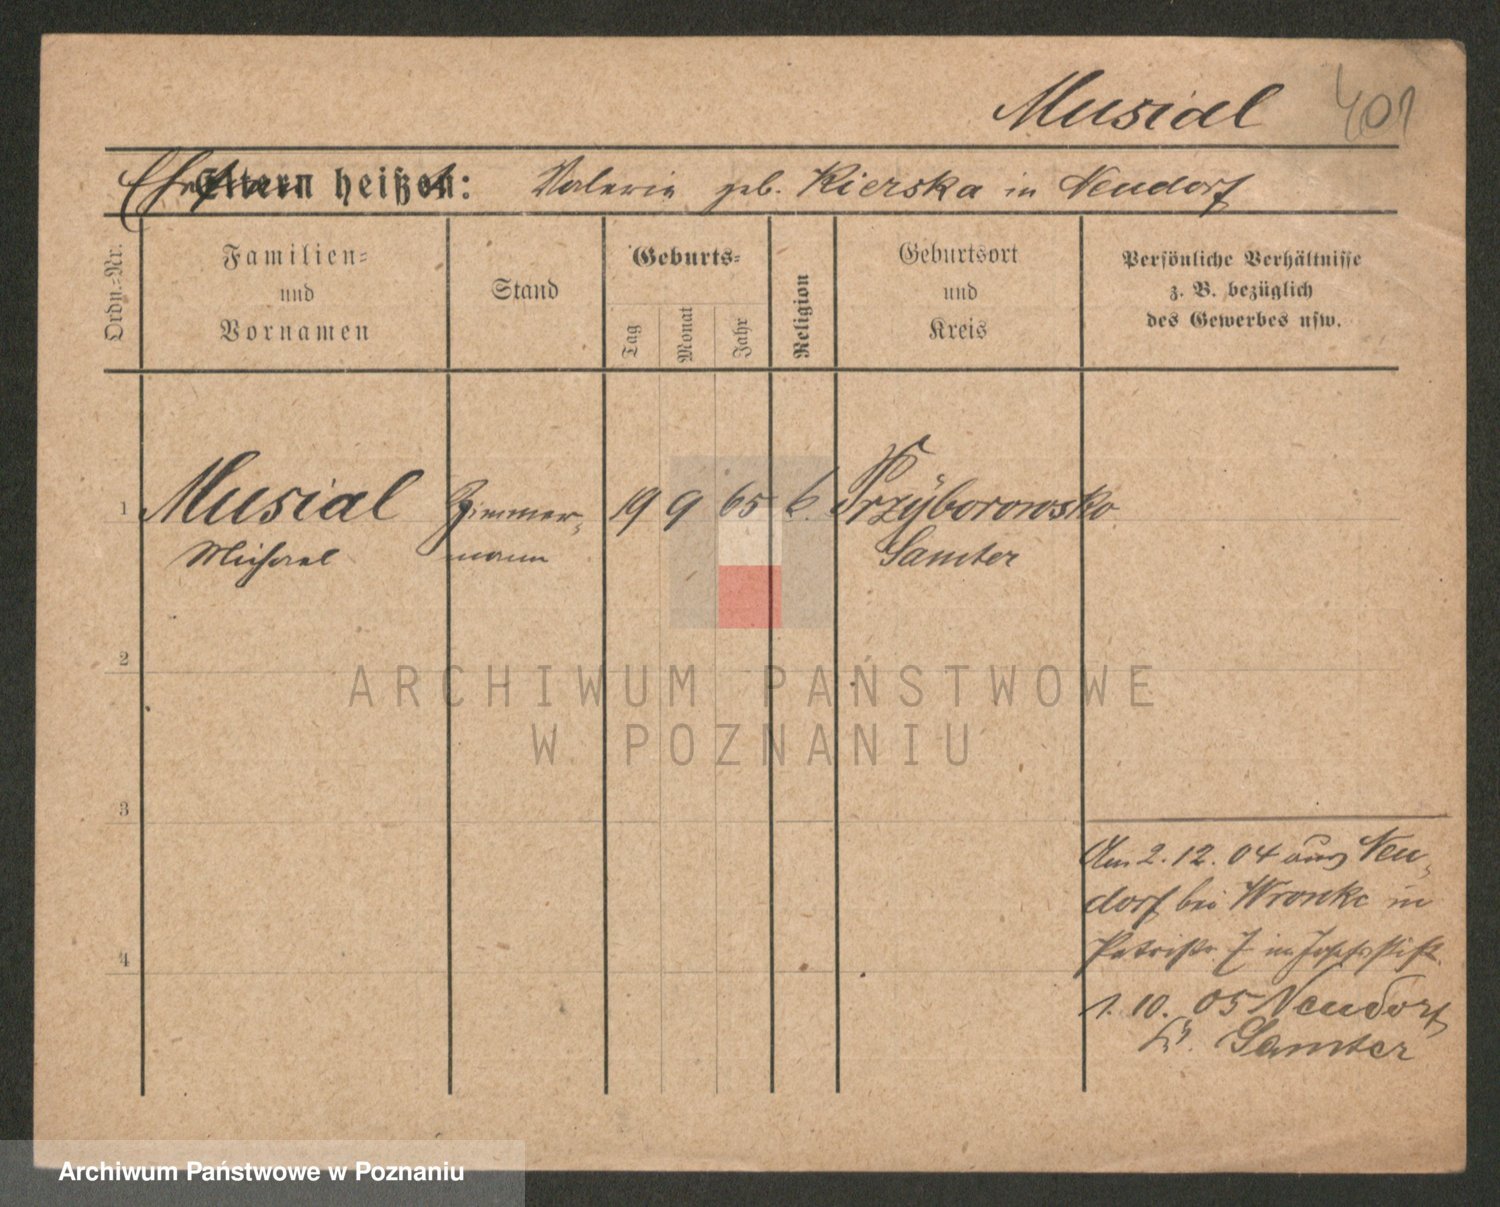 Musial 401
Ehefrau heißt: Valeria geb. Kierska in Neudorf
Ordn.-Nr.
Familien-
und
Vornamen
Stand
Geburts-
Tag
Monat
Jahr
Religion
Geburtsort
und
Kreis
Persönliche Verhältnisse
z. B. bezüglich
des Gewerbes usw.
1 Musial Zimmer- 19 9 65 k. Przyborowsko
Michael mann Samter
2
ARCHIWUM PAŃSTWOWE
W POZNANIU
3
Am 2. 12. 04 aus Neu-
dorf bei Wronke in
4
Petristr. 7 im Josephsstift.
1. 10. 05 Neudorf
Kr. Samter
Archiwum Państwowe w Poznaniu